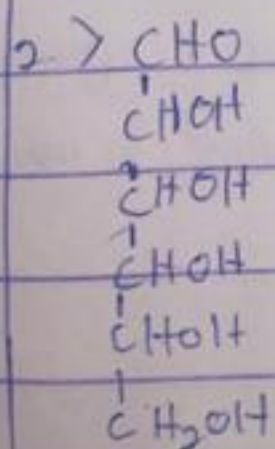 2 > CHO
CHOH
CHOH
CHOH
CHOH
CH₂OH